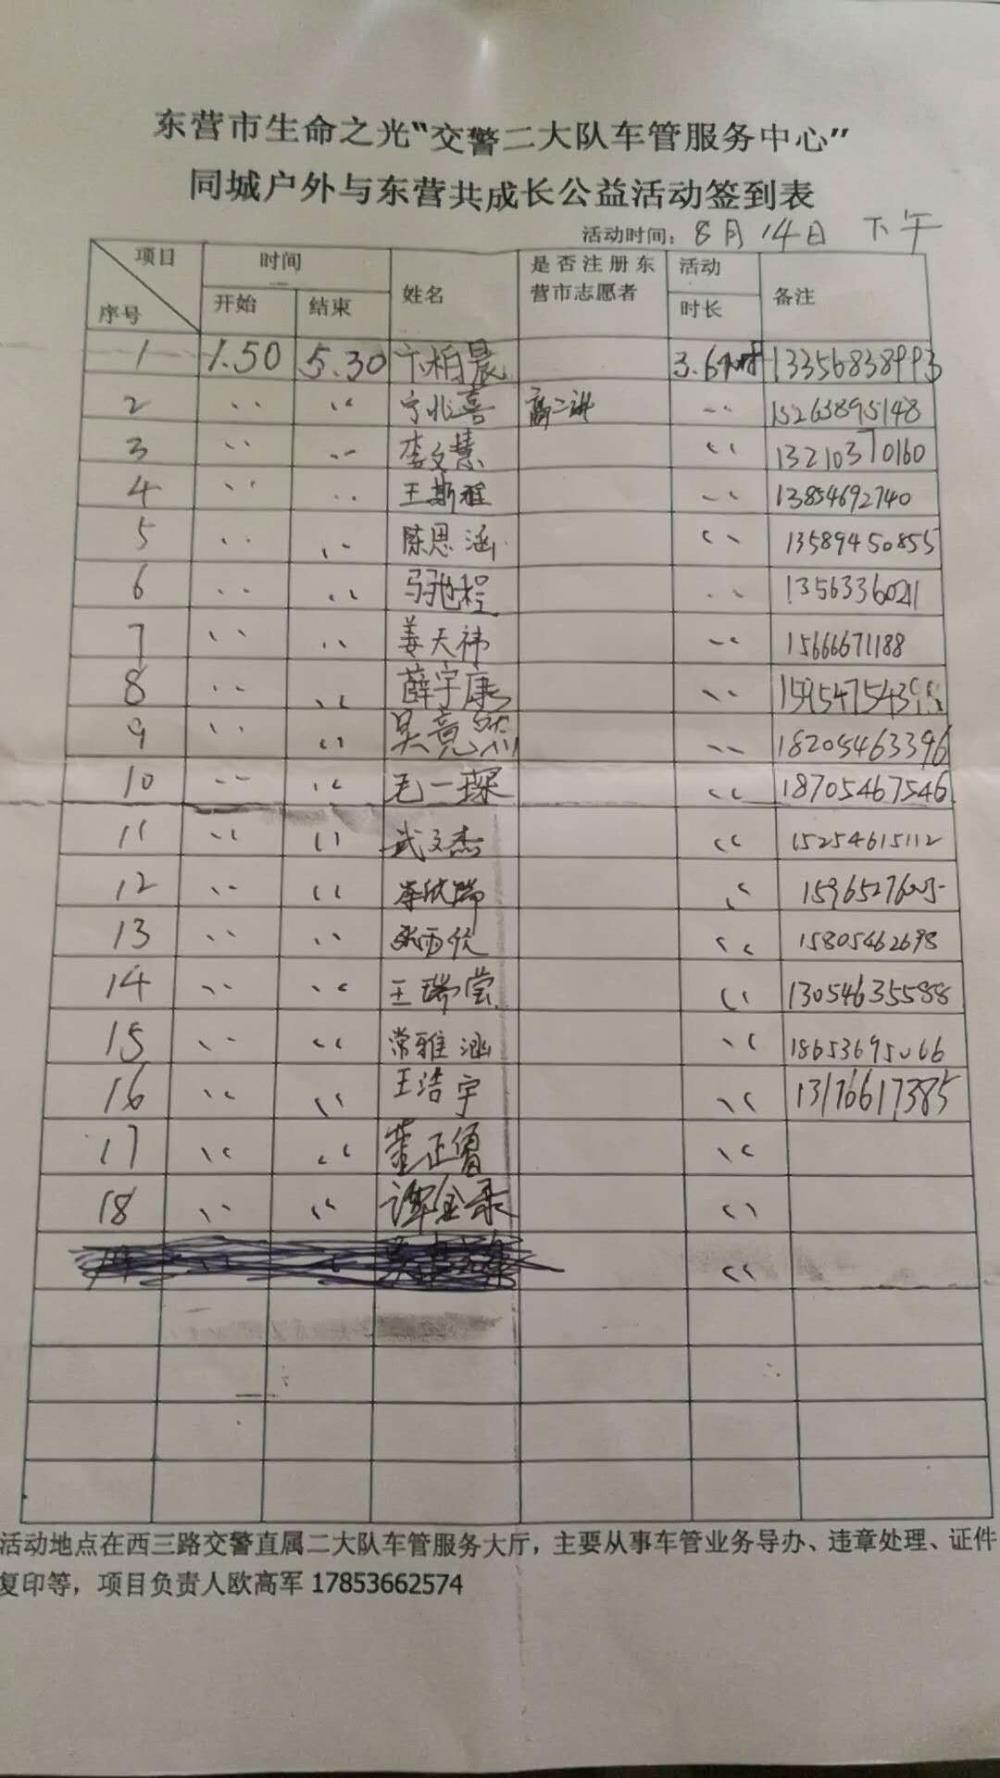 东营市生命之光“交警二大队车管服务中心”
同城户外与东营共成长公益活动签到表
活动时间：8月14日 下午
项目 序号 时间 开始 结束 姓名 是否注册东营市志愿者 活动时长 备注
1 1.50 5.30 卞柏晨 3.6小时 13356838993
2 〃 〃 宁兆喜 〃 15263895148
3 〃 〃 李文慧 〃 13210370160
4 〃 〃 王斯程 〃 13854692740
5 〃 〃 陈思涵 〃 13589450855
6 〃 〃 〃 13563360211
7 〃 〃 姜天祎 〃 15666671188
8 〃 〃 薛宇康 〃
9 〃 〃 吴竟然 〃 18205463396
10 〃 〃 毛一琛 〃 18705467546
11 〃 〃 武文杰 〃 15254615112
12 〃 〃 李欣瑞 〃
13 〃 〃 〃 15805462698
14 〃 〃 王瑞莹 〃 13054635588
15 〃 〃 常雅涵 〃 18653695066
16 〃 〃 王浩宇 〃 13176617385
17 〃 〃 董正鲁 〃
18 〃 〃 谭金录 〃
〃
活动地点在西三路交警直属二大队车管服务大厅，主要从事车管业务导办、违章处理、证件
复印等，项目负责人欧高军 17853662574